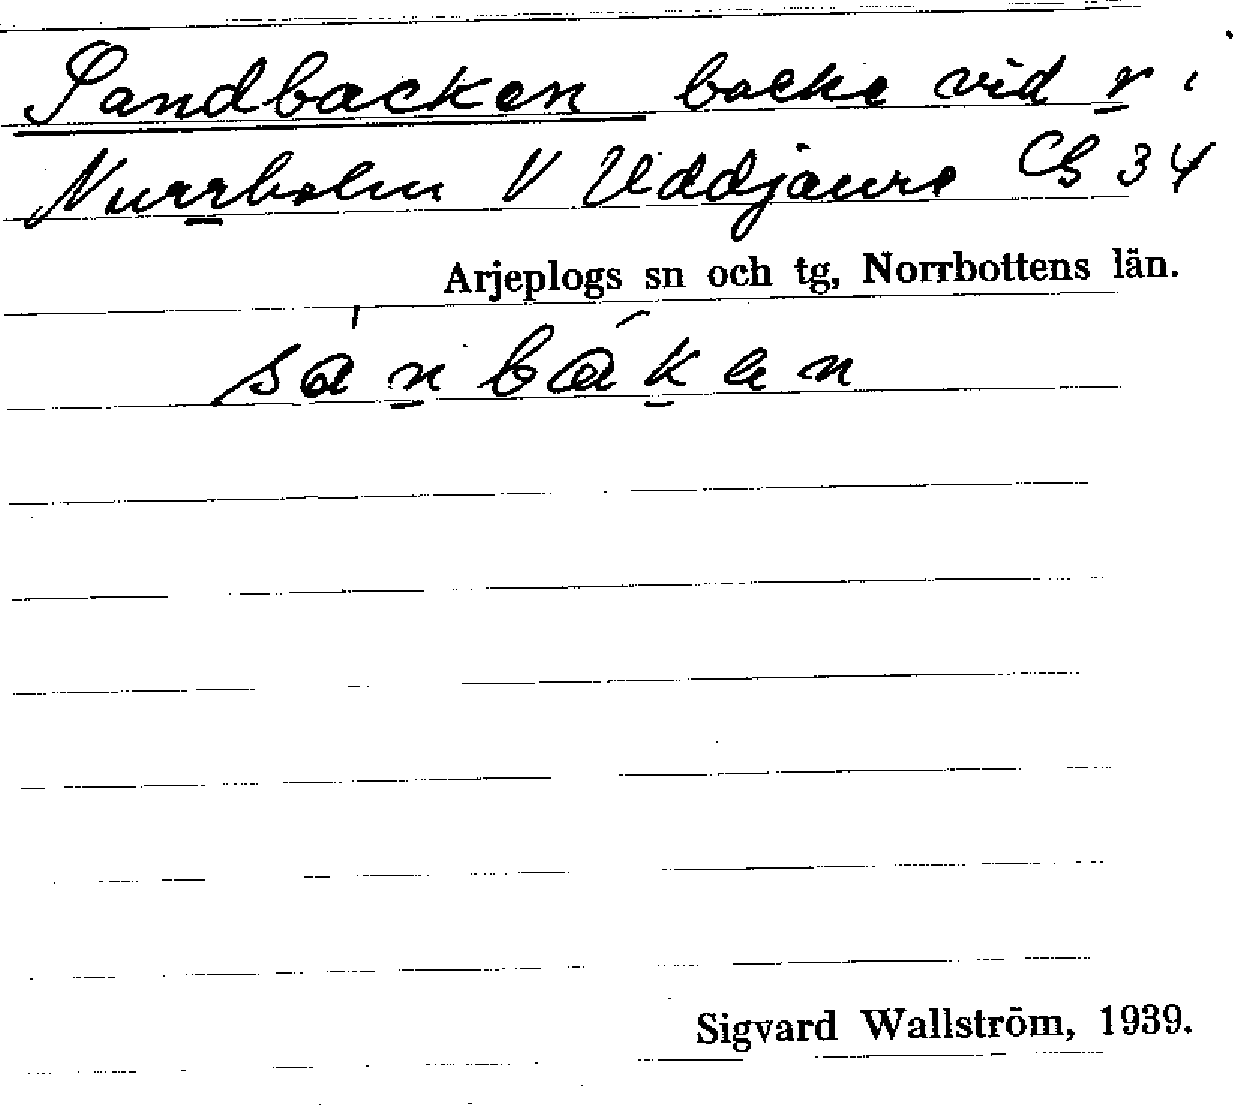 Sandbacken backe vid r i
Nurrholm V Uddjaure C8 34
Arjeplogs sn och tg, Norrbottens län.
sánbáken
Sigvard Wallström, 1939.